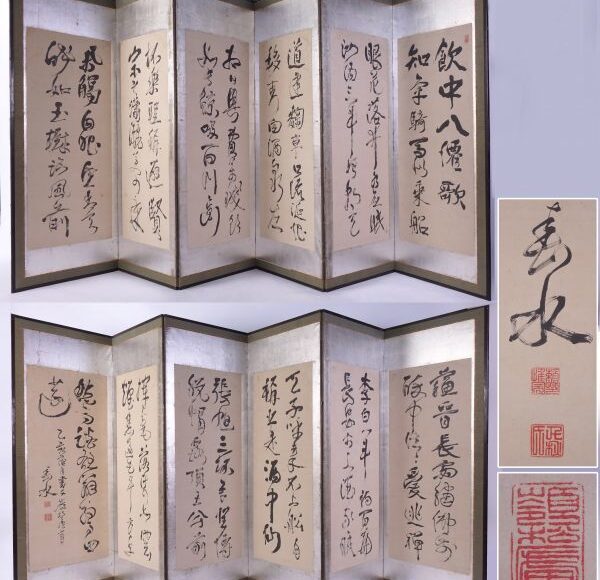 飲中八僊歌
知章騎馬似乘船
眼花落井水底眠
汝陽三斗始朝天
道逢麴車口流涎恨不
移封向酒泉左
相日興費萬錢飲
如長鯨吸百川銜
杯樂聖稱避賢
宗之瀟洒美少年
舉觴白眼望青天
皎如玉樹臨風前
蘇晉長齋繡佛前
醉中往往愛逃禪
李白一斗詩百篇
長安市上酒家眠
天子呼來不上船自
稱臣是酒中仙
張旭三杯草聖傳
脫帽露頂王公前
揮毫落紙如雲
烟焦遂五斗方卓
然高談雄辯驚四
筵
春水
春水